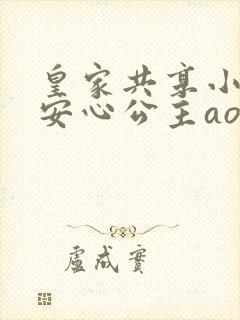 皇家共享小
安心公主ao
盧成實